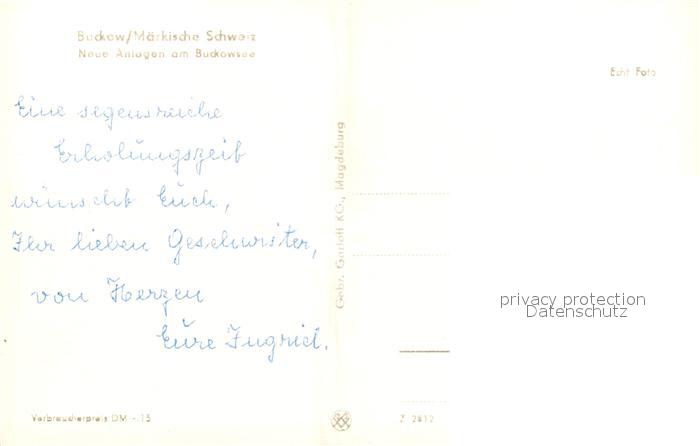 Buckow/Märkische Schweiz
Neue Anlagen am Buckowsee
Echt Foto
Eine segensreiche
Erholungszeit
wünscht Euch,
Ihr lieben Geschwister,
von Herzen
Eure Ingrid.
Gebr. Garloff KG., Magdeburg
privacy protection
Datenschutz
Verbraucherpreis DM -.15
Z 2812